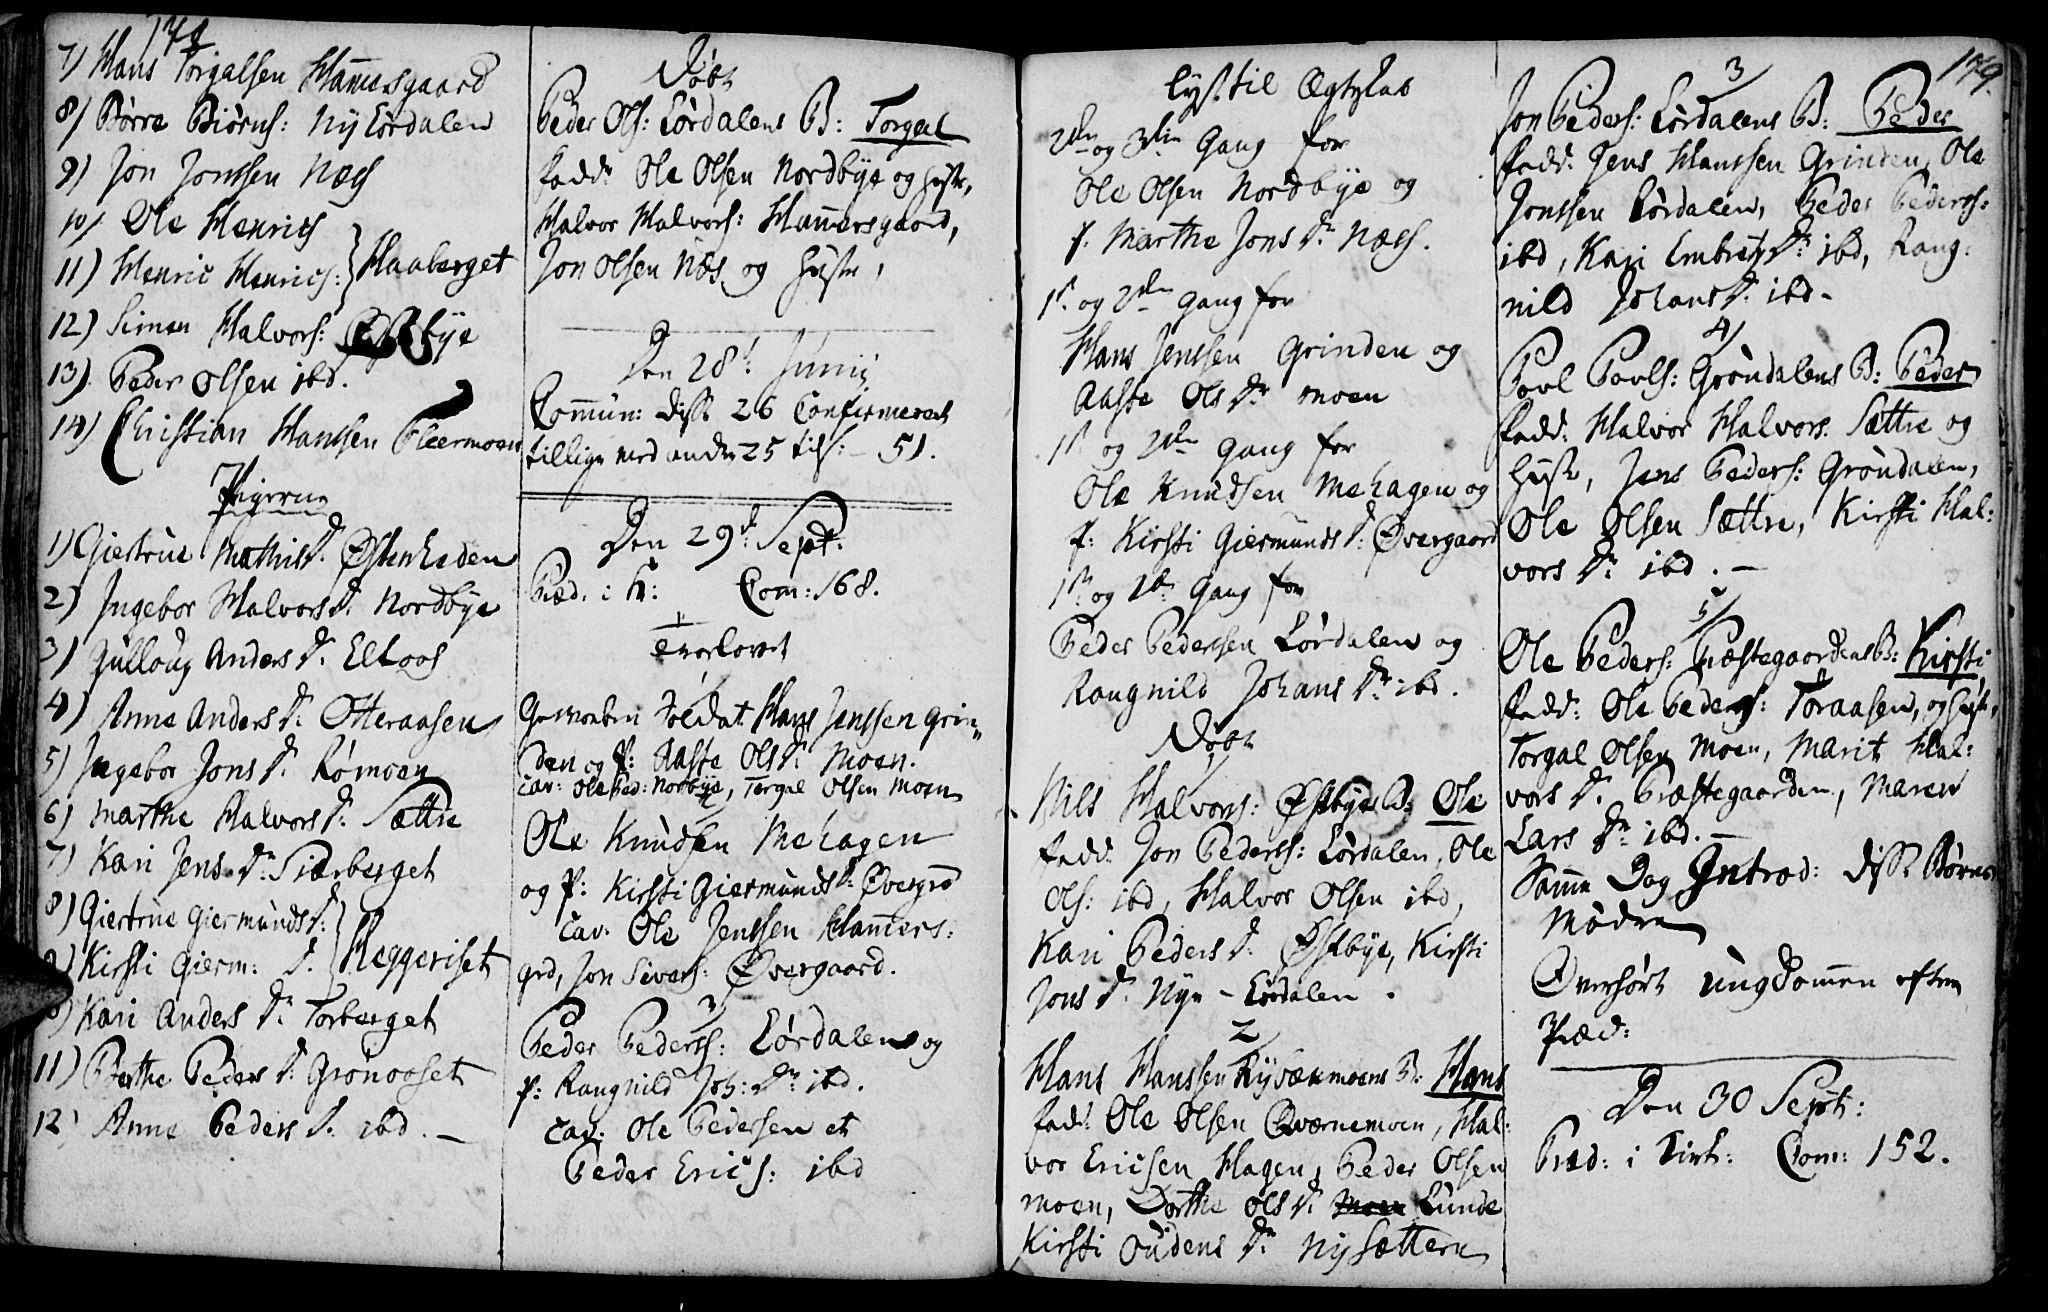 178
7) Hans Torgalsen Hammersgaard
8) Børre Biørns: Ny Lørdalen
9) Jon Jonssen Næss
10) Ole Henrics
11) Henric Henrics: } Haaberget
12) Simen Halvors: Østbye
13) Peder Olsen ibd.
14) Christian Hanssen Fleermoen
Pigerne
1) Giertrue Mathis D. Østenheden
2) Ingebor Halvors D. Nordbye
3) Gulloug Anders D. Elvoos
4) Anne Anders D. Otteraasen
5) Ingebor Jons D. Rømoen
6) Marthe Halvors D. Sættre
7) Kari Jens Dr. Siærberget
8) Giertrue Giermunds D.
9) Kirsti Gierm: D. } Heggeriset
10) Kari Anders Dr. Torberget
11) Berthe Peders D. Grønoaset
12) Anne Peders D. ibd. —
Døbt
Peder Ols: Lørdalens B: Torgal
fadd. Ole Olsen Nordbye og hustr,
Halvor Halvors: Hammersgaard,
Jon Olsen Næs og hustr,
Den 28d. Junij
Commun: disse 26 Confirmerede
tillige med andre 25 tils: — 51.
Den 29d. Sept:
Præd. i K: Com: 168.
1
Trorlovet
Soldat Hans Jenssen Grin„
den og P: Aaste Ols D. Moen.
Cav: Ole Ped: Norbye, Torgal Olsen Moen
2
Ole Knudsen Mehagen
og P: Kirsti Giermunds D. Øvergrd
Cav. Ole Jenssen Hammers:
grd, Jon Sivers: Øvergaard.
3
Peder Peders: Lørdalen og
P: Rangnild Joh: Dr. ibd.
Cav: Ole Pedersen et
Peder Erics: ibd
Lyst til Ægteskab
2den og 3die Gang for
Ole Olsen Nordbye og
P. Marthe Jons Dr. Næss.
1st. og 2den Gang for
Hans Jenssen Grinden og
Aaste Ols Dr. Moen
1st. og 2den Gang for
Ole Knudsen Mehagen og
P: Kirsti Giermunds D. Øvergaard
1st. og 2den Gang for
Peder Pederssen Lørdalen og
Rangnild Johans Dr. ibd.
Døbt
1
Nils Halvors: Østbyes B: Ole
fadd. Jon Peders: Lørdalen, Ole
Ols: ibd, Halvor Olsen ibd,
Kari Peders D. Østbye, Kirsti
Jons D. Nye-Lørdalen.
2
Hans Hanssen Rysæemoens B: Hans
fadd: Ole Olsen Qværnemoen, Hal:
vor Ericsen Hagen, Peder Olsen
Moen, Dorthe Ols D. Moen Lunde
Kirsti Oudens Dr. Nysættern
179.
3
Jon Peders: Lørdalens B: Peder
fadd: Jens Hanssen Grinden, Ole
Jonssen Lørdalen, Peder Peders:
ibd, Kari Embrets Dr. ibd, Rang:
nild Johans D. ibd.
4
Povl Povls: Grøndalens B: Peder
fadd: Halvor Halvors. Sættre og
hustr, Jens Peders: Grøndalen,
Ole Olsen Sættre, Kirsti Hal:
vors Dr. ibd. —
5
Ole Peders: Præstegaardens B: Kirsti
fadd: Ole Peders: Toraasen, og hustr,
Torgal Olsen Moen, Marit Hal:
vors D. Præstegaarden, Maren
Lars Dr. ibd. —
Samme Dag Introd: disse Børnes
Mødre
Overhørt Ungdommen efter
Præd:
Den 30 Sept:
Præd: i Kirk: Com: 152.